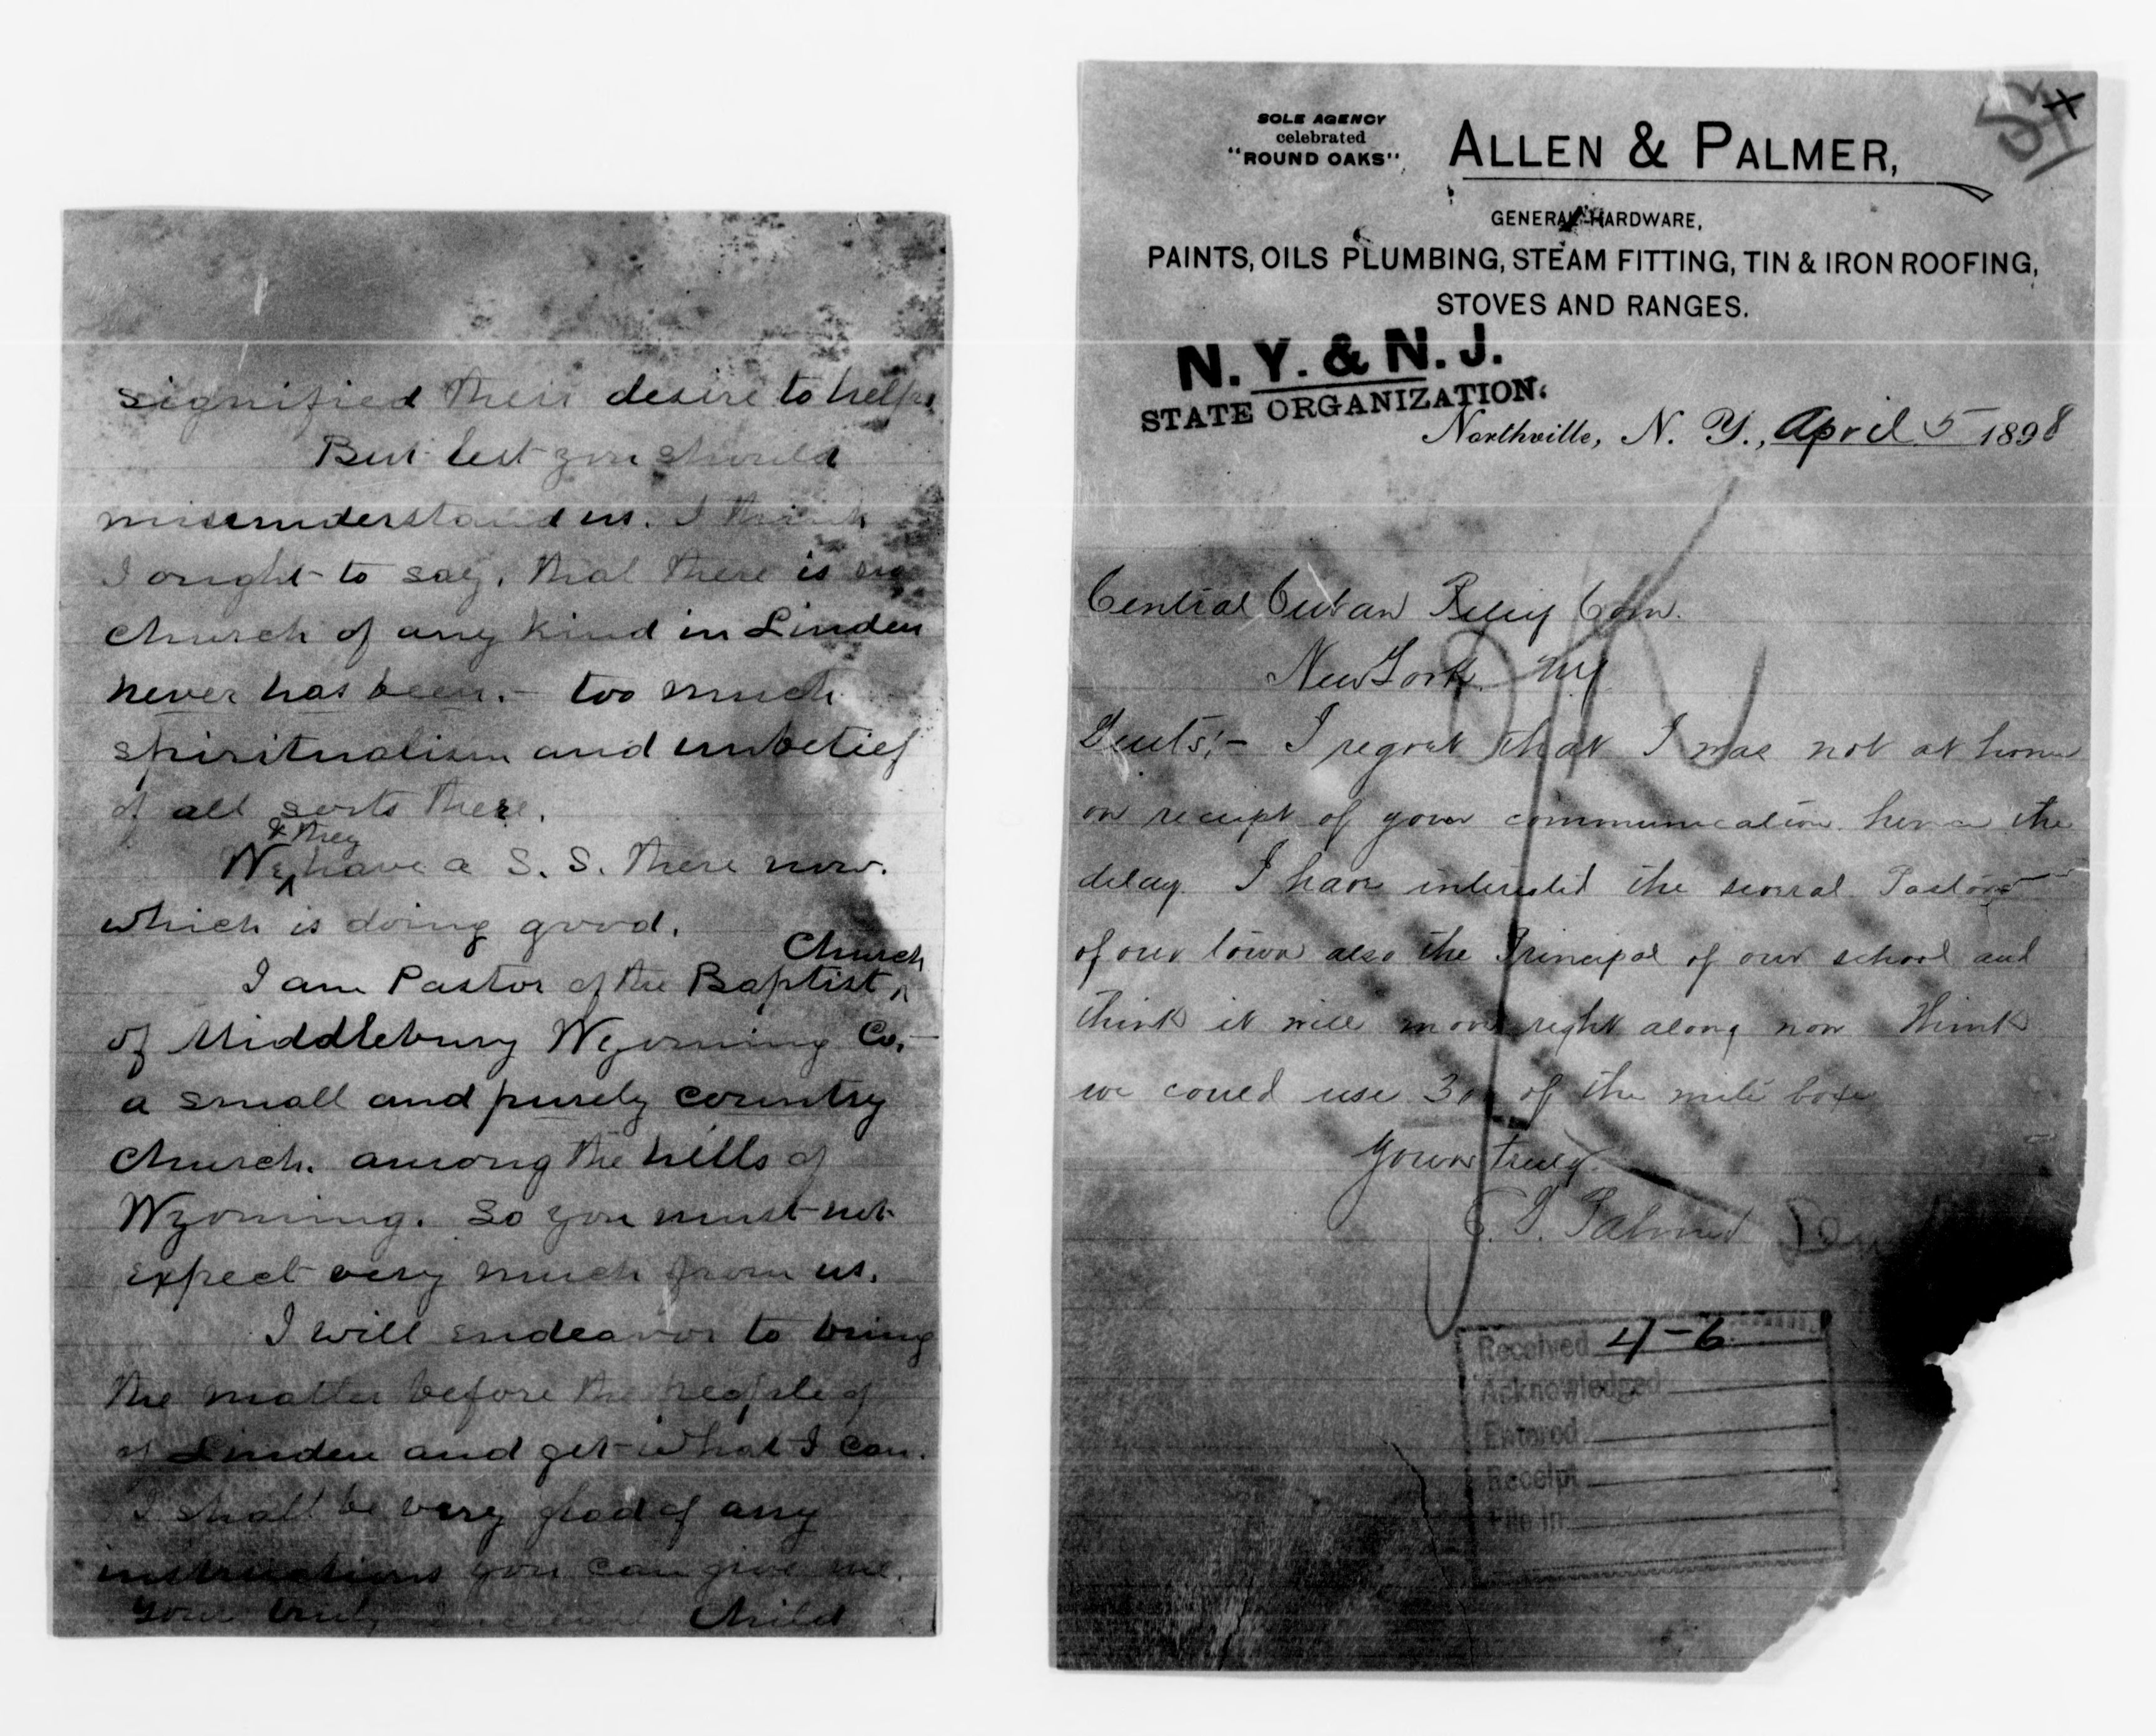 signified their desire to help.
But lest you should
misunderstand us. I think
I ought to say, that there is no
church of any kind in Linden
never has been. - too much
spiritualism and unbelief
of all sorts there.
& they
We have a S. S. there now.
which is doing good.
Church
I am Pastor of the Baptist
of Middlebury Wyoming Co. -
a small and purely country
church. among the hills of
Wyoming. So you must not
expect very much from us.
I will endeavor to bring
the matter before the people of
of Linden and get what I can.
I shall be very glad of any
instructions you can give me.
Your truly Child
SOLE AGENCY
celebrated
"ROUND OAKS"
ALLEN & PALMER,
GENERAL HARDWARE,
PAINTS, OILS PLUMBING, STEAM FITTING, TIN & IRON ROOFING,
STOVES AND RANGES.
N. Y. & N. J.
STATE ORGANIZATION.
Northville, N. Y., April 5 1898
Central Cuban Relief Com.
New York NY
Gents:- I regret that I was not at home
on receipt of your communication hence the
delay. I have interested the several Pastors
of our town also the Principal of our school and
think it will move right along now think
we could use 300 of the mite boxes
Yours truly
C. D. Palmer
Received 4-6
Acknowledged
Entered
Receipt
File in